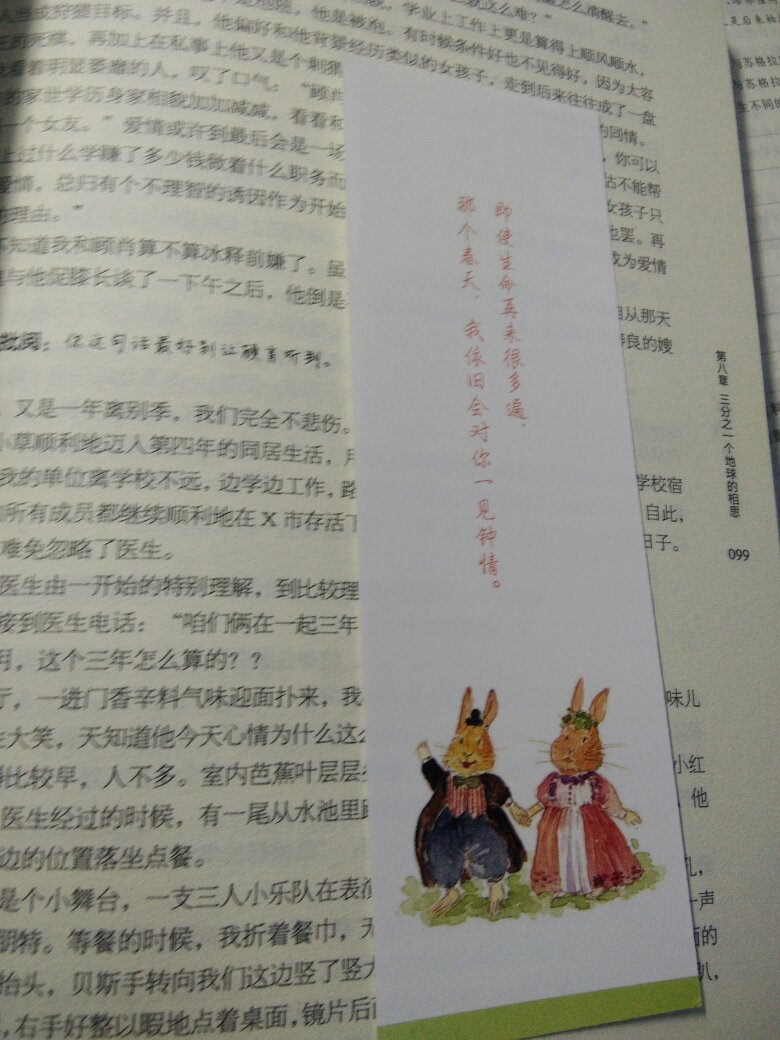 学业上工作上更是算得上顺风顺水，
当成狩猎目标。并且，他偏好和他背景经历类似的女孩子，走到后来往往成了一盘
再加上在私事上他又是个刺猬
有时候条件好也不见得好，因为太容
看着明显萎靡的人，叹了口气：“顾肖
的家世学历身家相貌加加减减，看看和
的同情。
一个女友。”爱情或许到最后会是一场
，你可以
上过什么学赚了多少钱做着什么职务而
估不能帮
爱情，总归有个不理智的诱因作为开始
女孩子只
理由。”
也罢。再
不知道我和顾肖算不算冰释前嫌了。虽
成为爱情
与他促膝长谈了一下午之后，他倒是
自从那天
善良的嫂
批阅：你这句话最好别让顾肖听到。
又是一年离别季，我们完全不悲伤。
小草顺利地迈入第四年的同居生活，
我的单位离学校不远，边学边工作，路
学校宿
所有成员都继续顺利地在X市存活了
自此，
难免忽略了医生。
日子。
医生由一开始的特别理解，到比较理
接到医生电话：“咱们俩在一起三年
，这个三年怎么算的？？
厅，一进门香辛料气味迎面扑来，我
味儿
大笑，天知道他今天心情为什么这么
比较早，人不多。室内芭蕉叶层层
小红
医生经过的时候，有一尾从水池里
，他
边的位置落坐点餐。
是个小舞台，一支三人小乐队在表演
孔，
朋特。等餐的时候，我折着餐巾，
一声
抬头，贝斯手转向我们这边竖了竖大
面的
，右手好整以暇地点着桌面，镜片后
趴，
即使生命再来很多遍，
那个春天，我依旧会对你一见钟情。
第八章 三分之一个地球的相思
099
与苏格拉